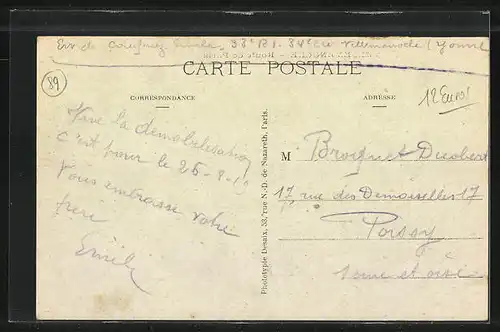 Env. de Émile 33e 34e Cie Villemanoche (Yonne)
CARTE POSTALE
89
CORRESPONDANCE
ADRESSE
12 Euros
Vive la démobilisation
c'est pour le 25-8-19
Vous embrasse votre
frère
Emile
Phototypie Desaix, 33, rue N.-D. de Nazareth, Paris.
M
17, rue des Demoiselles 17
Poissy
Seine et oise